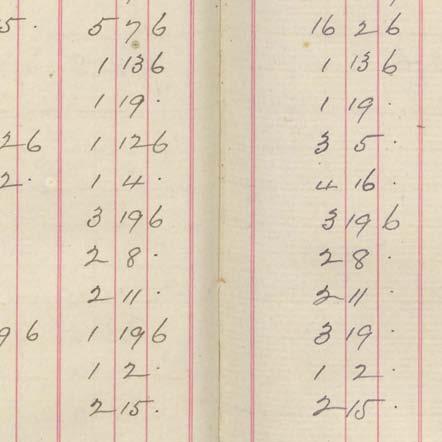 5 · 5 7 6 16 2 6
1 13 6 1 13 6
1 19 · 1 19 ·
2 6 1 12 6 3 5 ·
2 · 1 4 · 4 16 ·
3 19 6 3 19 6
2 8 · 2 8 ·
2 11 · 2 11 ·
9 6 1 19 6 3 19 ·
1 2 · 1 2 ·
2 15 · 2 15 ·